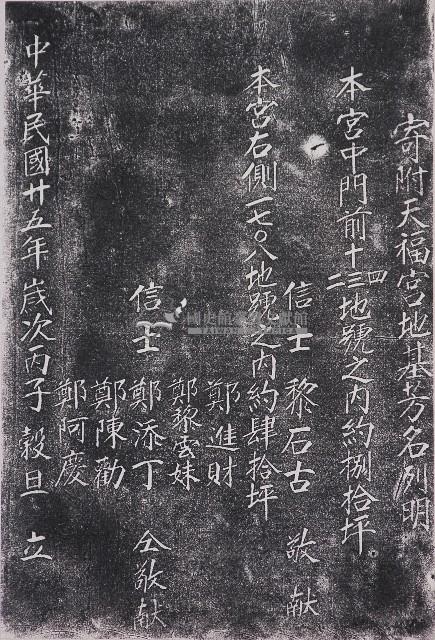 寄附天福宮地基芳名列明
本宮中門前十二三四地號之內約捌拾坪
信士 黎石古 敬献
本宮右側一七〇八地號之內約肆拾坪
鄭進財
鄭黎雲妹
信士 鄭添丁 仝敬献
鄭陳勸
鄭阿慶
中華民國廿五年歲次丙子穀旦 立